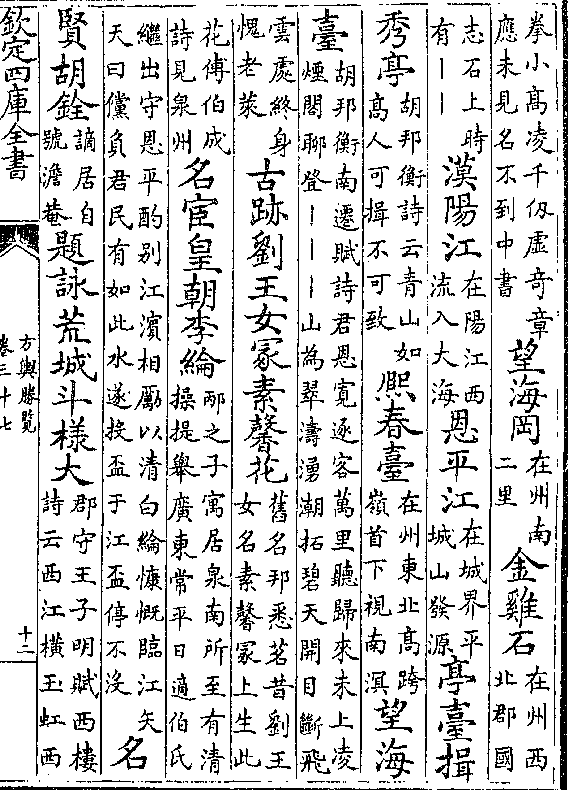 拳小髙凌千仭虛竒章
應未見名不到中書
望海岡
在州南
二里
金雞石
在州西
北郡國
志石上時
有丨丨
漠陽江
在陽江西
流入大海
恩平江
在城界平
城山發源
亭臺揖
秀亭
胡邦衡詩云青山如
髙人可揖不可致
熙春臺
在州東北髙跨
嶺首下視南溟
望海
臺
胡邦衡南遷賦詩君恩寛逐客萬里聽歸來未上凌
煙閣聊登丨丨丨山為翠濤湧朝拓碧天開目斷飛
雲處終身
愧老萊
古跡劉王女冢素馨花
舊名邦悉茗昔劉王
女名素馨冢上生此
花傅伯成
詩見泉州
名宦皇朝李綸
邴之子寓居泉南所至有清
操提舉廣東常平日適伯氏
繼出守恩平酌别江濱相勵以清白綸慷慨臨江矢
天曰儻負君民有如此水遂投盃于江盃停不没
名
賢胡銓
謫居自
號澹菴
題詠荒城斗様大
郡守王子明賦西樓
詩云西江横玉虹西
欽定四庫全書
方輿勝覽
卷三十七
十二